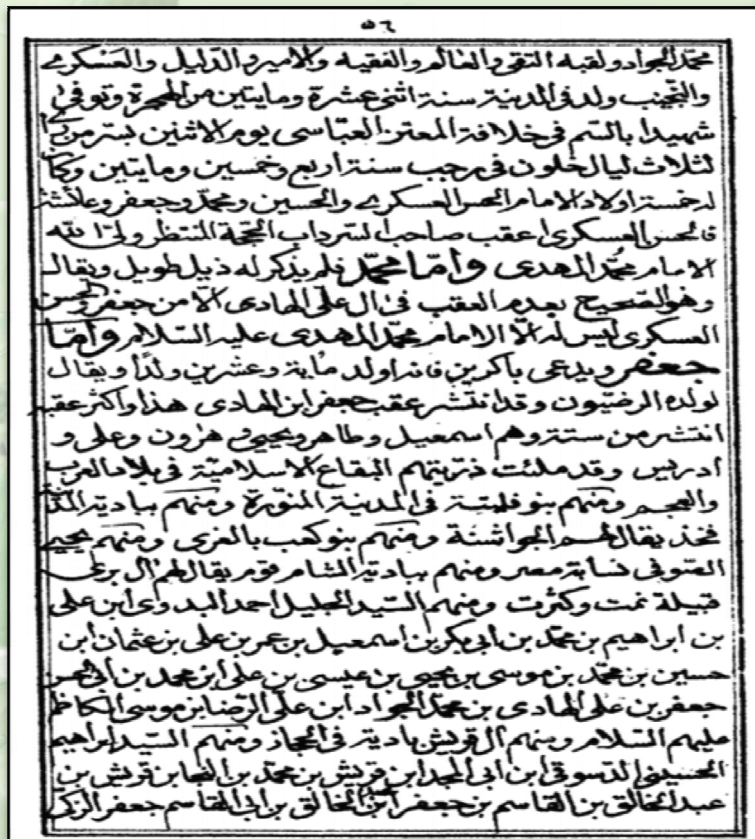 ٥٦
محمد الجواد ولقبه التقى والعالم والفقيه والامير والدليل والعسكرى
والنجيب ولد فى المدينة سنة اثنى عشرة ومايتين من الهجرة وتوفى
شهيدا بالسم فى خلافة المعتز العباسى يوم الاثنين بسر من را
لثلاث ليال خلون فى رجب سنة اربع وخمسين ومايتين وكا
له خمسة اولاد الامام الحسن العسكرى والحسين ومحمد وجعفر وعائشة
فالحسن العسكرى اعقب صاحب السرداب الحجة المنتظر ولى الله
الامام محمد المهدى واما محمد فلم يذكر له ذيل طويل ويقال
وهو الصحيح بعدم العقب فى ال على الهادى الا من جعفر والحسن
العسكرى ليس له الا الامام محمد المهدى عليه السلام واما
جعفر ويدعى باكرين فانه اولد ماية وعشرين ولدا ويقال
لولده الرضيون وقد انتشر عقب جعفر ابن الهادى هذا واكثر عقبه
انتشر من ستة وهم اسمعيل وطاهر ويحيى وهرون وعلى و
ادريس وقد ملئت ذريتهم البقاع الاسلامية فى بلاد العرب
والعجم ومنهم بنو فليتة فى المدينة المنورة ومنهم ببادية
فخذ يقال لهم الجواشنة ومنهم بنو كهب بالغرى ومنهم يحيى
الصوفى نسابة مصر ومنهم ببادية الشام قوم يقال لهم ال برى
قبيلة نمت وكثرت ومنهم السيد الجليل احمد البدوى ابن على
بن ابراهيم بن محمد بن ابى بكر بن اسمعيل بن عمر بن على بن عثمان ابن
حسين بن محمد بن موسى بن يحيى بن عيسى بن على ابن محمد بن ابى الحسن
جعفر بن على الهادى بن محمد الجواد ابن على الرضا بن موسى الكاظم
عليهم السلام ومنهم ال قريش بادية فى الحجاز ومنهم السيد ابراهيم
الحسينى الدسوقى ابن ابى المجد ابن قريش بن محمد بن النجا بن قريش بن
عبد الخالق بن القاسم بن جعفر ابن الخالق بن ابى القاسم جعفر الزكى